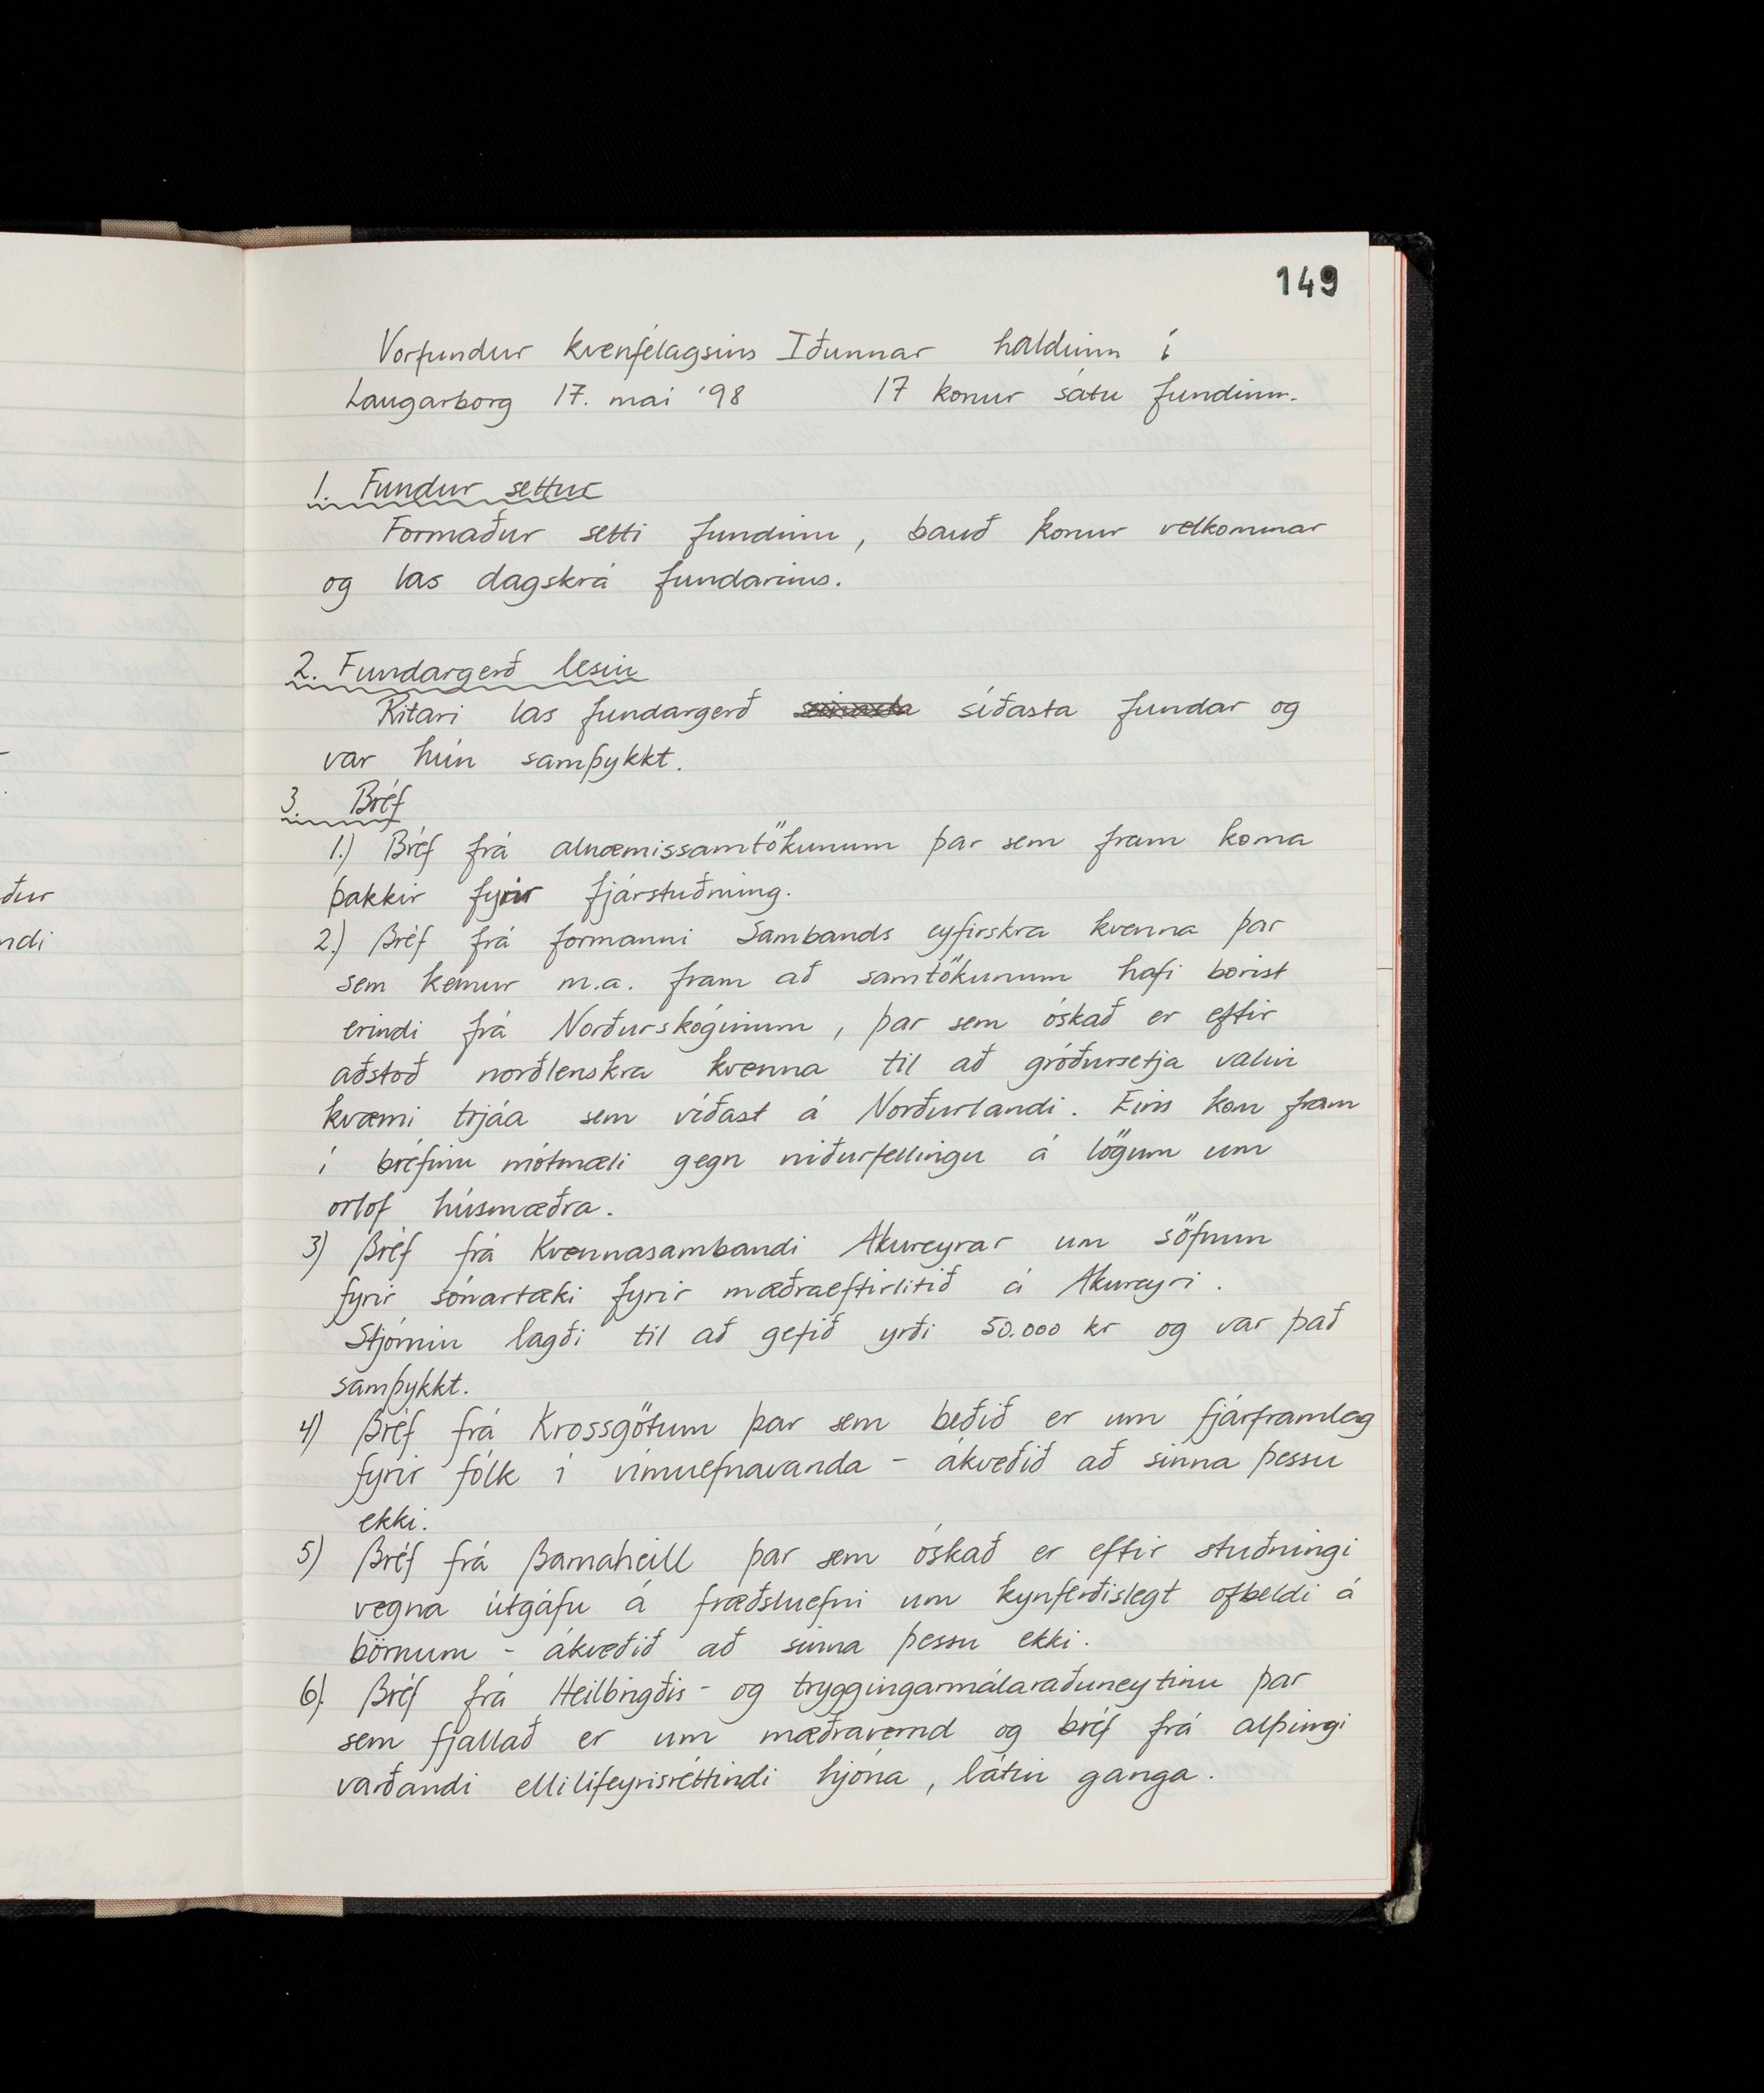 149
Vorfundur kvenfélagsins Iðunnar haldinn í
Laugarborg 17. maí '98 17 konur sátu fundinn.
1. Fundur settur
Formaður setti fundinn, bauð konur velkomnar
og las dagskrá fundarins.
2. Fundargerð lesin
Ritari las fundargerð síðasta fundar og
var hún samþykkt.
3. Bréf
1.) Bréf frá alnæmissamtökunum þar sem fram koma
þakkir fyrir fjárstuðning.
2.) Bréf frá formanni Sambands eyfirskra kvenna þar
sem kemur m.a. fram að samtökunum hafi borist
erindi frá Norðurskóginum, þar sem óskað er eftir
aðstoð norðlenskra kvenna til að gróðursetja valin
kvæmi trjáa sem víðast á Norðurlandi. Eins kom fram
í bréfinu mótmæli gegn niðurfellingu á lögum um
orlof húsmæðra.
3) Bréf frá Kvennasambandi Akureyrar um söfnun
fyrir sónartæki fyrir mæðraeftirlitið á Akureyri.
Stjórnin lagði til að gefið yrði 50.000 kr og var það
samþykkt.
4) Bréf frá Krossgötum þar sem beðið er um fjárframlag
fyrir fólk í vímuefnavanda - ákveðið að sinna þessu
ekki.
5) Bréf frá Barnaheill þar sem óskað er eftir stuðningi
vegna útgáfu á fræðsluefni um kynferðislegt ofbeldi á
börnum - ákveðið að sinna þessu ekki.
6). Bréf frá Heilbrigðis- og tryggingarmálaraðuneytinu þar
sem fjallað er um mæðravernd og bréf frá alþingi
varðandi ellilífeyrisréttindi hjóna, látin ganga.